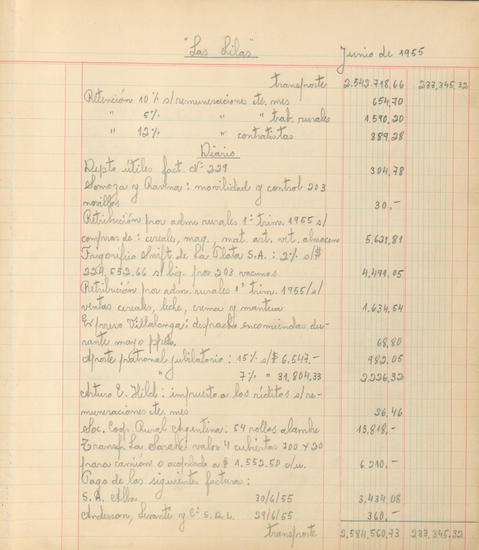 "Las Lilas" Junio de 1955
transporte 2.542.718,66 277,345.32
Retención 10% s/remuneraciones ete. mes 654,70
" 5% " " trab. rurales 1.590,20
" 12% " contratistas 889,28
Diario
Depto útiles fact. Nº 229 304,78
Somoza y Ravina: movilidad y control 203
novillos 30.-
Retribución por adm. rurales 1º trim. 1955 s/
compras de: cereales, maq., mat. art. vrt. almacen 5.621,81
Frigorífico Swift de La Plata S.A.: 2% s/$
224.552.66 s/liq. por 203 vacunos 4.491,05
Retribución por adm. rurales 1º trim. 1955/s/
ventas cereales, leche, crema y manteca 1.634,54
Expreso Villalonga: despacho encomiendas du-
rante mayo ppdo. 68,80
Aporte patronal jubilatorio: 15% s/$ 6.547.- 982,05
" 7% " 31,804.33 2.226,32
Arturo E. Hild: impuesto a los réditos s/re-
muneraciones ete. mes 26,46
Soc. Coop. Rural Argentina: 54 rollos alambre 13,818.-
Transp. La Sarah: valor 4 cubiertas 700 x 20
para camión o acoplado a $ 1.552.50 c/u. 6.210.-
Pago de las siguientes facturas:
S.A. Alba 30/6/55 3,434,08
Anderson, Levanti y Cº S.R.L. 29/6/55 360.-
transporte 2,584,560,73 277,345.32